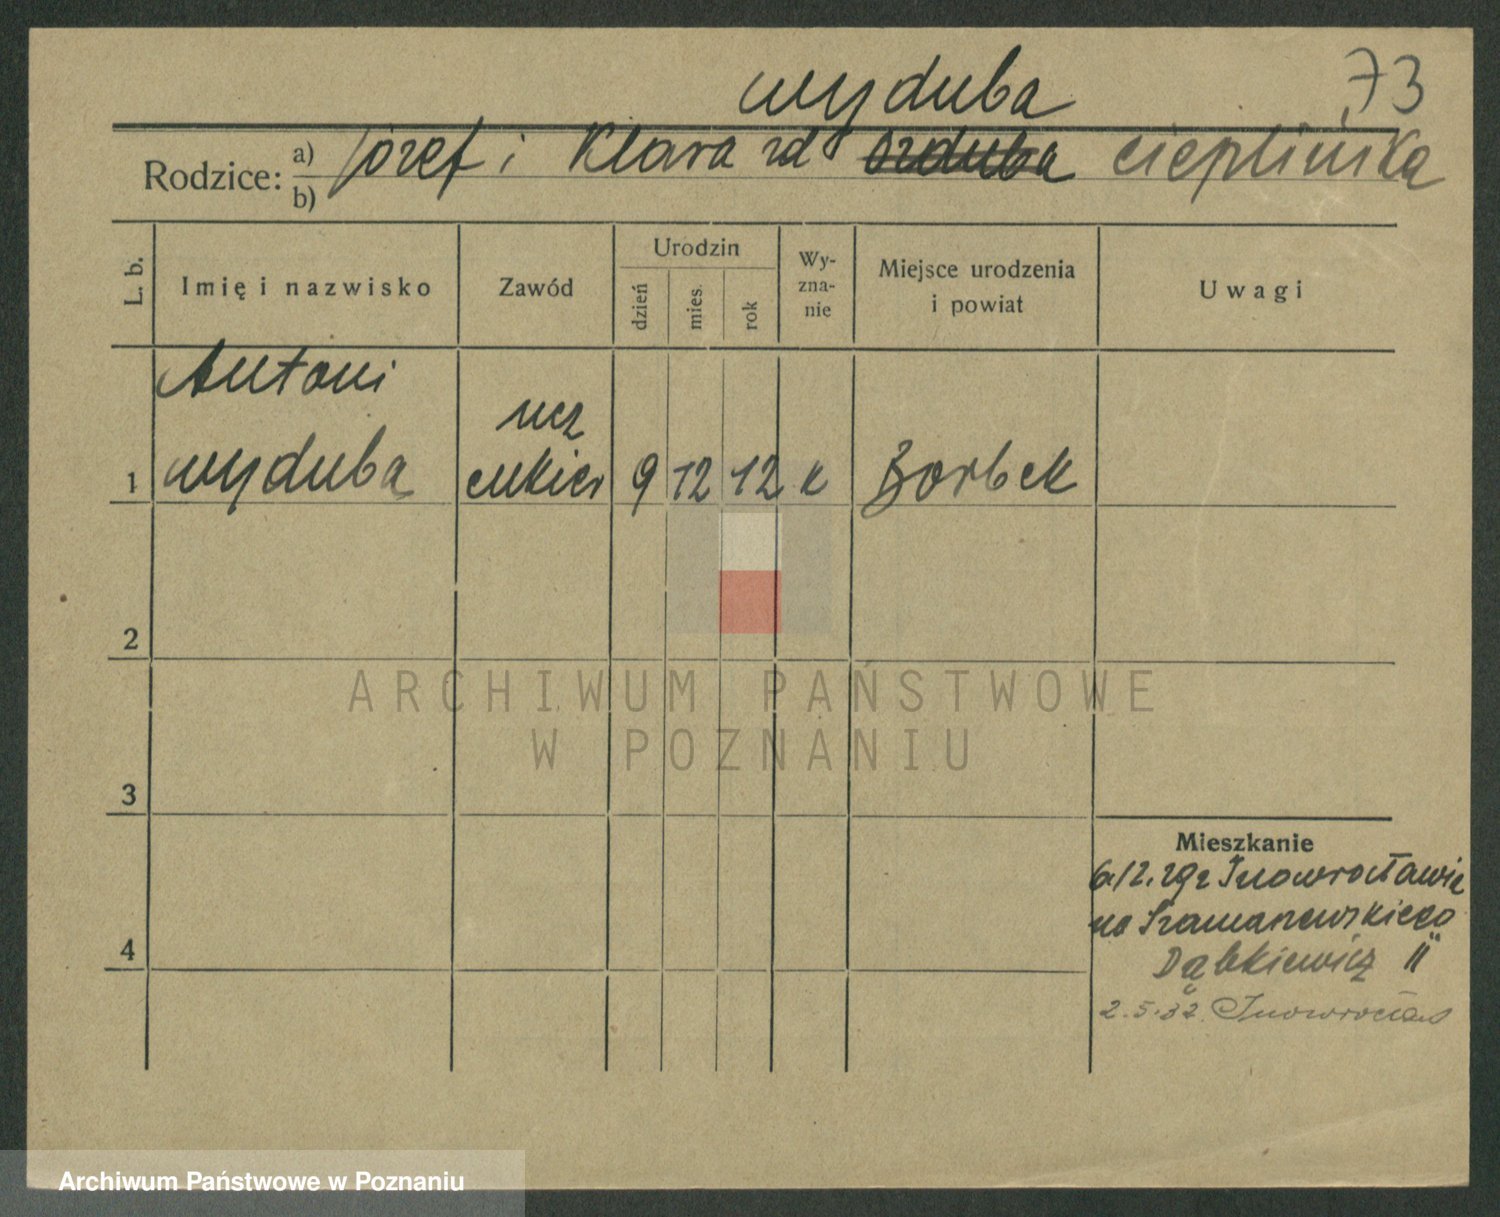 wyduba
73
Rodzice: a) Józef i Klara zd ozduba cieplińska
b)
L. b.
Imię i nazwisko
Zawód
Urodzin
dzień
mies.
rok
Wy-
zna-
nie
Miejsce urodzenia
i powiat
Uwagi
Antoni
1 wyduba
ucz
cukier
9 12 12 k Borbek
2
3
4
Mieszkanie
6/12.29 z Inowrocławia
na Szamarzewskiego
Dąbkiewicz 11
2.5.32. Inowrocław
ARCHIWUM PAŃSTWOWE
W POZNANIU
Archiwum Państwowe w Poznaniu